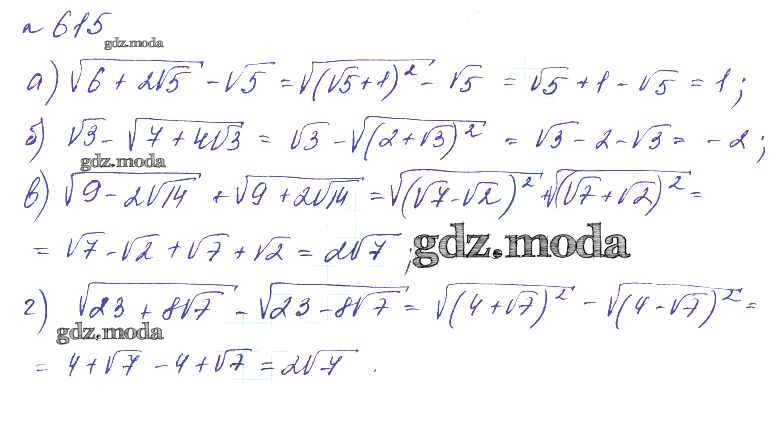 № 615
gdz.moda
а) √(6 + 2√5) - √5 = √((√5+1)²) - √5 = √5 + 1 - √5 = 1;
б) √3 - √(7 + 4√3) = √3 - √((2+√3)²) = √3 - 2 - √3 = -2;
gdz.moda
в) √(9 - 2√14) + √(9 + 2√14) = √((√7-√2)²) + √((√7+√2)²) =
= √7 - √2 + √7 + √2 = 2√7;
gdz.moda
г) √(23 + 8√7) - √(23 - 8√7) = √((4+√7)²) - √((4-√7)²) =
gdz.moda
= 4 + √7 - 4 + √7 = 2√7.